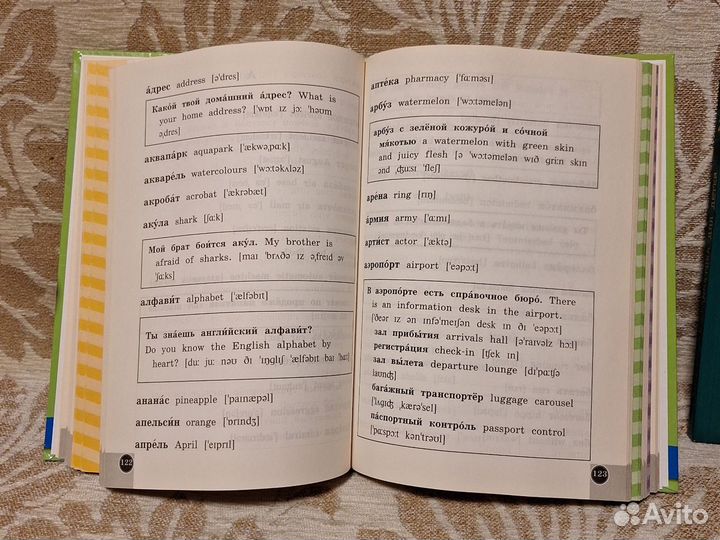 а́дрес address [ə'dres]
Како́й твой дома́шний а́дрес? What is
your home address? ['wɒt ɪz jɔː 'həʊm
ə͵dres]
аквапа́рк aquapark ['ækwə͵pɑːk]
акваре́ль watercolours ['wɔːtəkʌləz]
акроба́т acrobat ['ækrəbæt]
аку́ла shark [ʃɑːk]
Мой брат бои́тся аку́л. My brother is
afraid of sharks. [maɪ 'brʌðə ɪz ə͵freɪd əv
'ʃɑːks]
алфави́т alphabet ['ælfəbɪt]
Ты зна́ешь англи́йский алфави́т?
Do you know the English alphabet by
heart? [duː juː nəʊ ðɪ 'ɪŋglɪʃ 'ælfəbɪt baɪ
'hɑːt]
анана́с pineapple ['paɪnæpəl]
апельси́н orange ['ɒrɪndʒ]
апре́ль April ['eɪprɪl]
122
апте́ка pharmacy ['fɑːməsɪ]
арбу́з watermelon ['wɔːtəmelən]
арбу́з с зелёной кожуро́й и со́чной
мя́котью a watermelon with green skin
and juicy flesh [ə 'wɔːtəmelən wɪð griːn skɪn
ənd ͵dʒuːsɪ 'fleʃ]
аре́на ring [rɪŋ]
а́рмия army ['ɑːmɪ]
арти́ст actor ['æktə]
аэропо́рт airport ['eəpɔːt]
В аэропо́рте есть спра́вочное бюро́. There
is an information desk in the airport.
[ðeər ɪz ən ɪnfə'meɪʃən desk ɪn ðɪ 'eəpɔːt]
зал прибы́тия arrivals hall [ə'raɪvəlz hɔːl]
регистра́ция check-in [tʃek ɪn]
зал вы́лета departure lounge [dɪ'pɑːtʃə
laʊndʒ]
бага́жный транспортёр luggage carousel
['lʌgɪdʒ ͵kærə'sel]
па́спортный контро́ль passport control
['pɑːspɔːt kən'trəʊl]
123
Avito